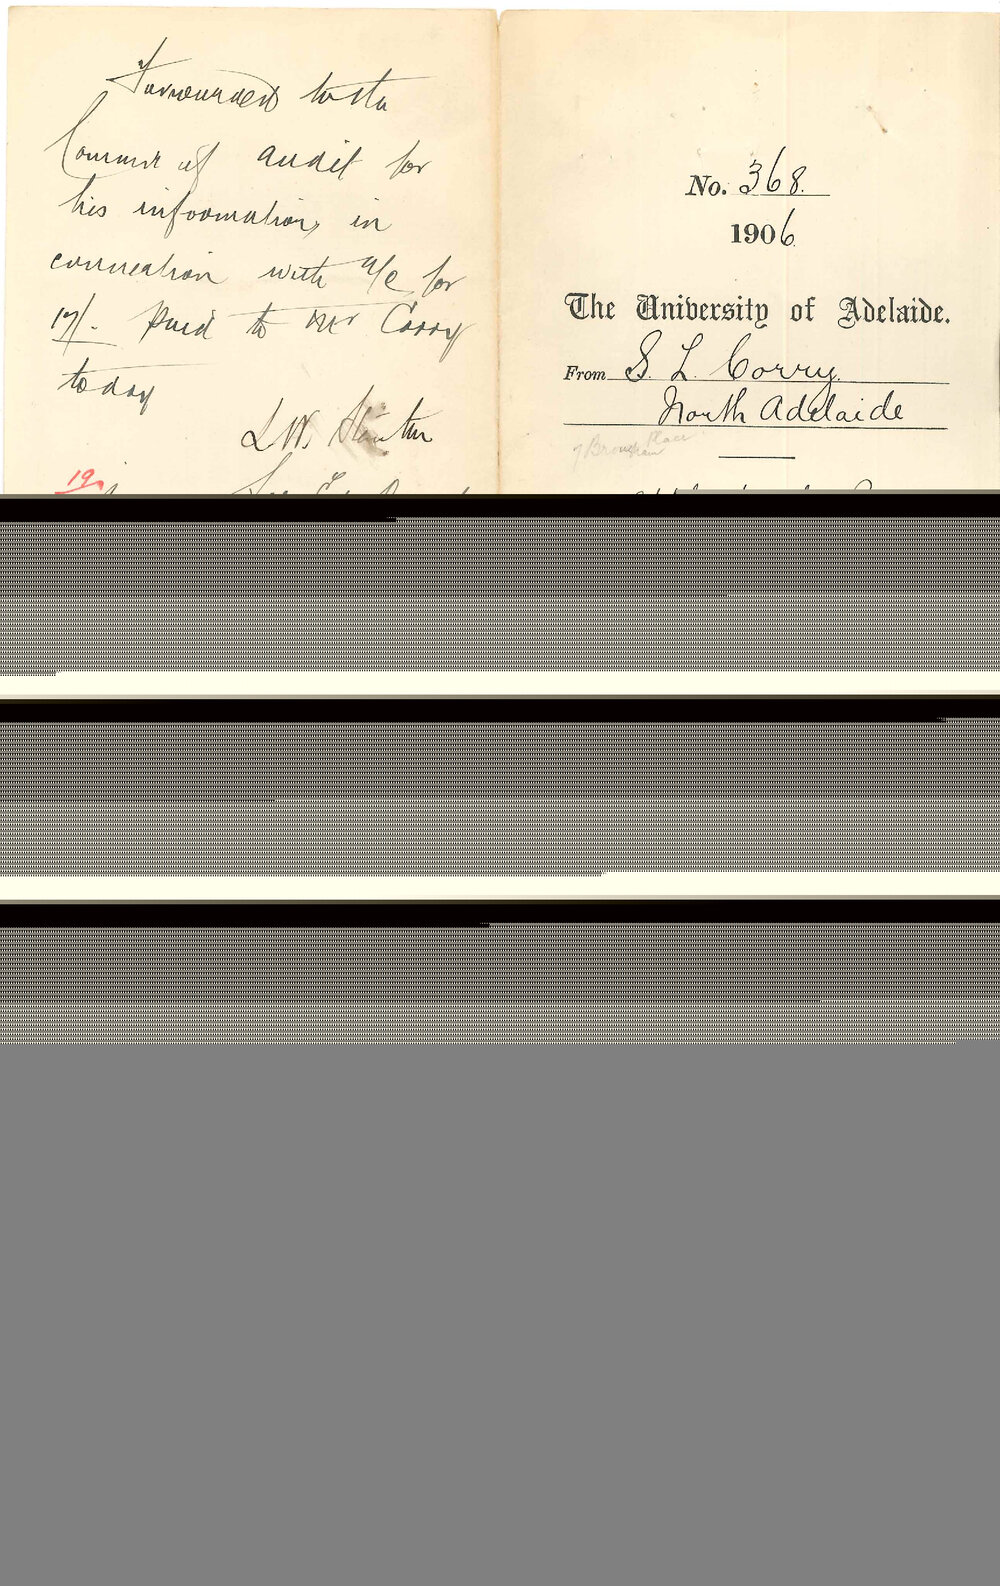 Forwarded to the
Commr of audit for
his information, in
connection with a/c for
17/- paid to Mr Corry
today
19
No. 368.
1906
The University of Adelaide.
From S. L. Corry
North Adelaide
7 Brougham Place